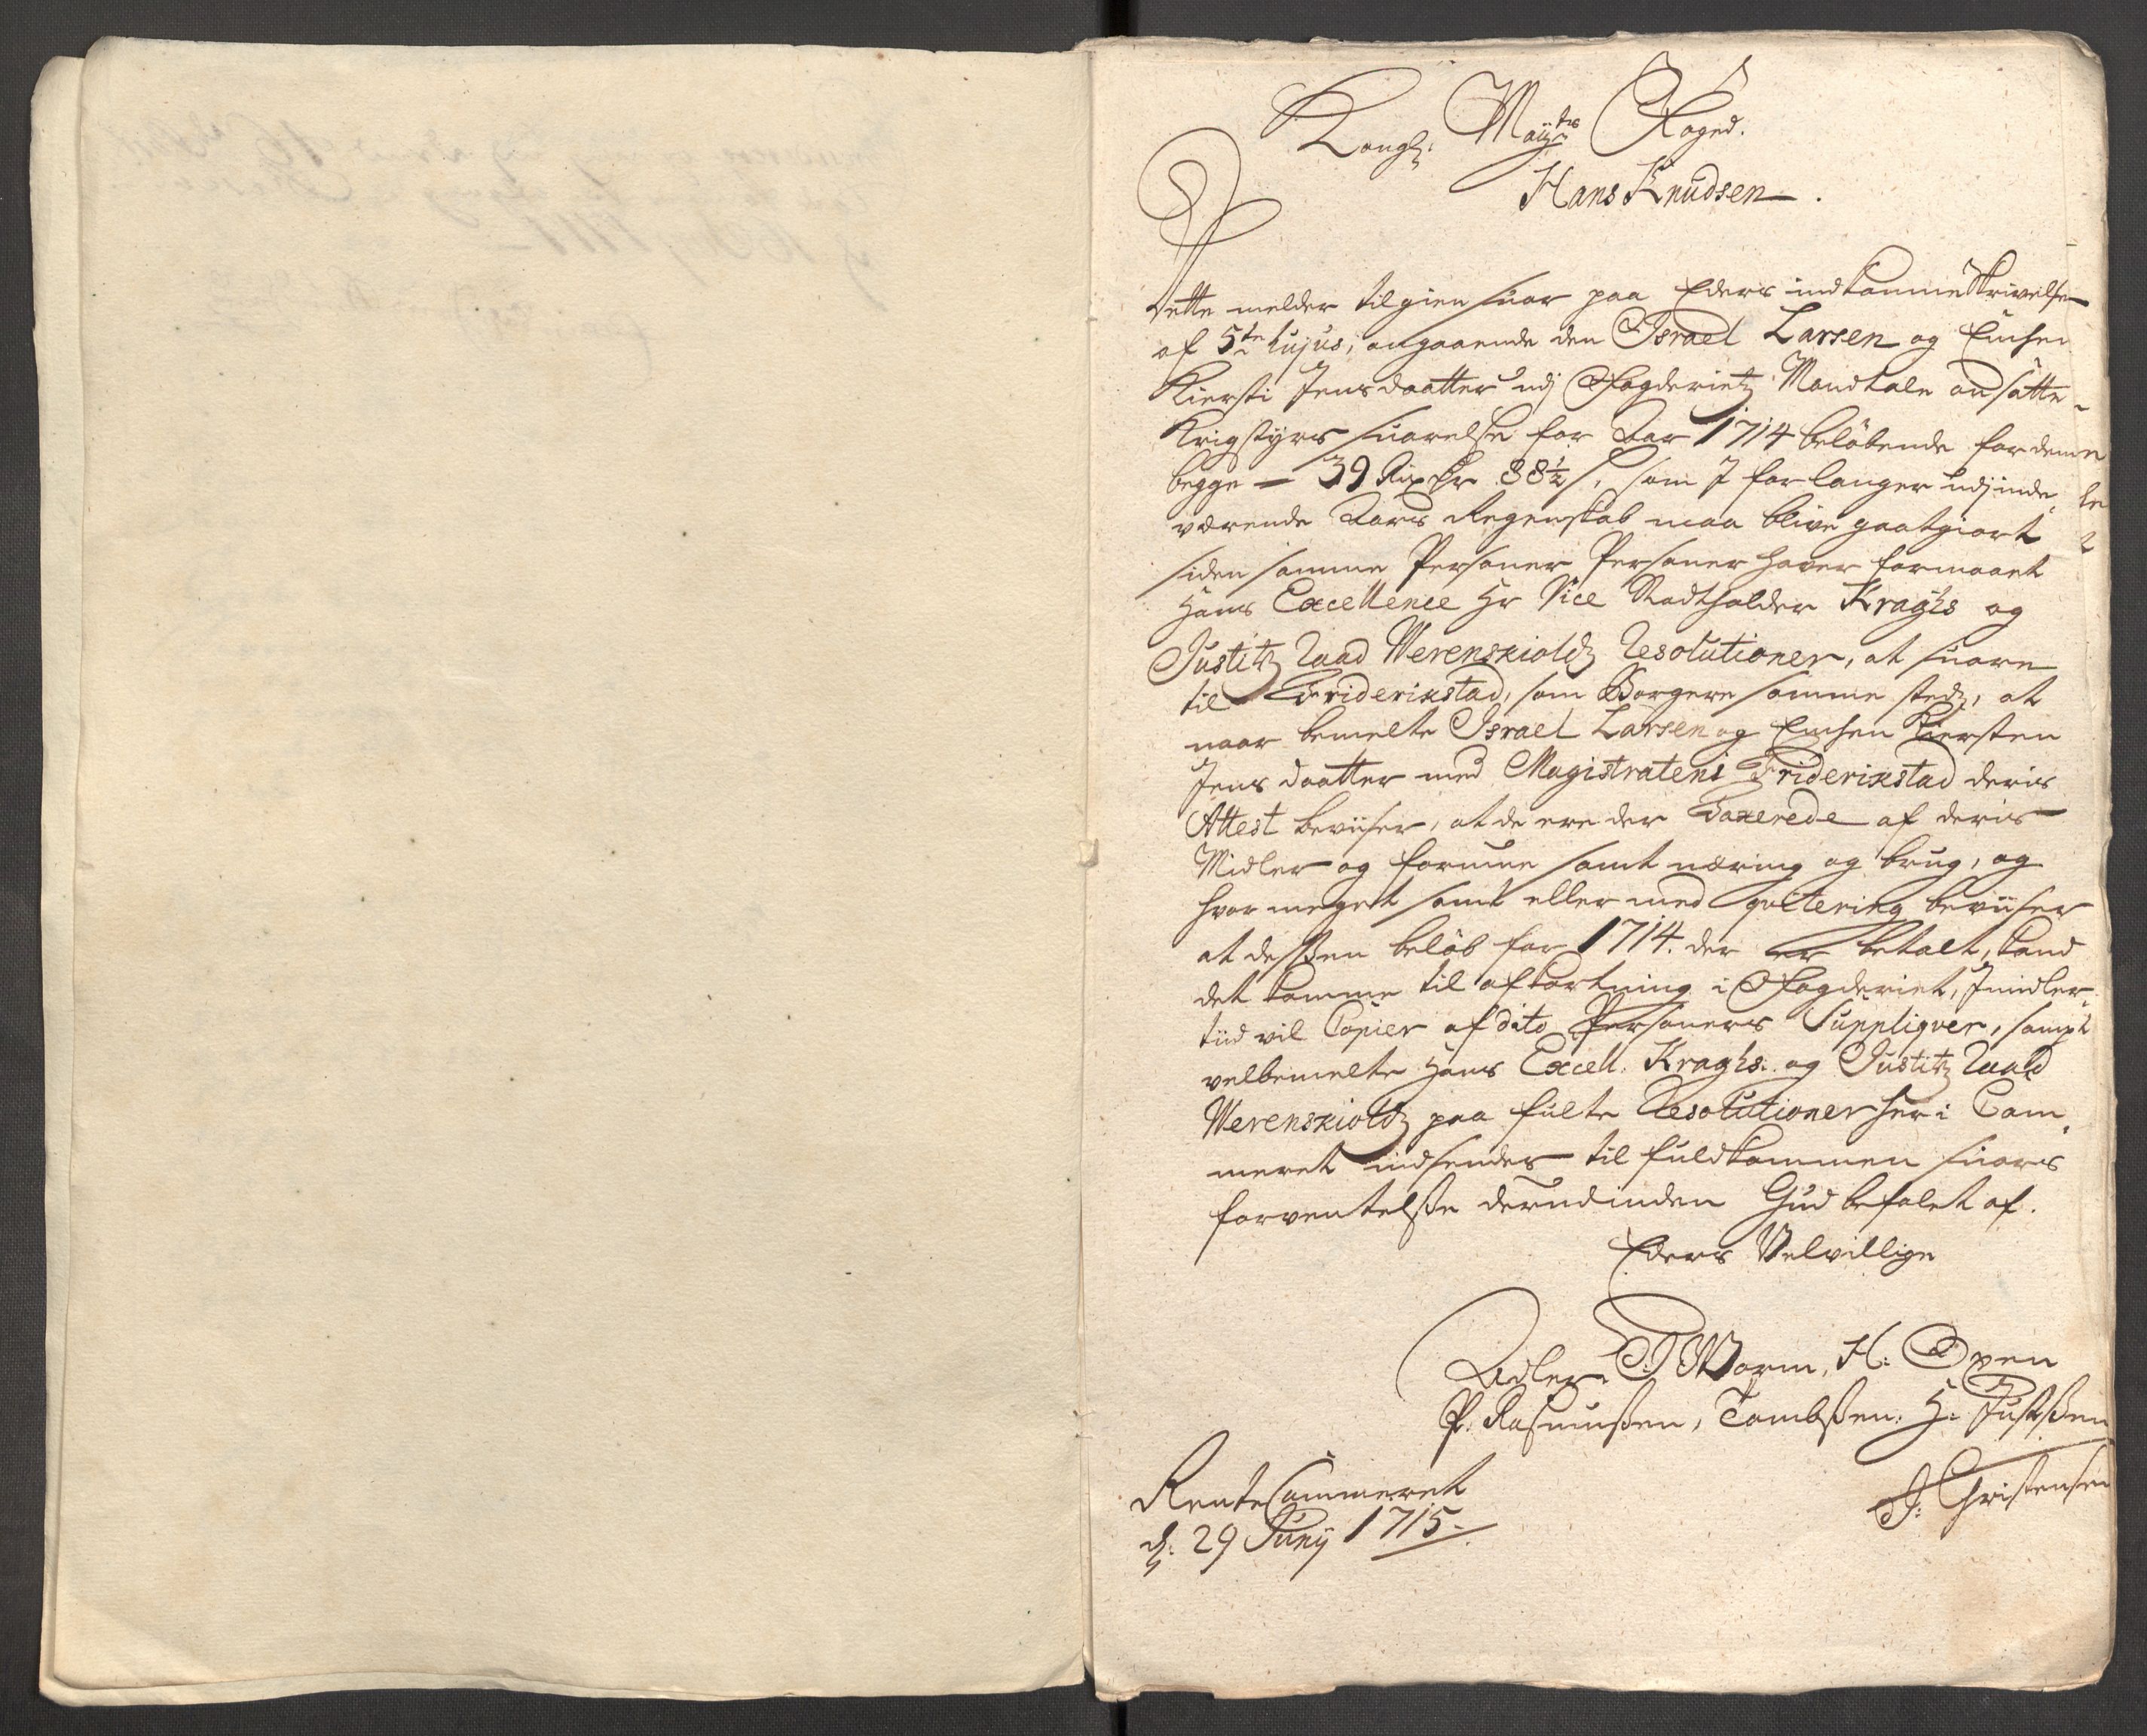 Kongl: Maÿts Foged.
Hans Knudsen.
Dette melder til gien suar paa Eders indkomne Skrivelse
af 5te hujus, angaaende den Israel Larsen og Enchen
Kiersti Jensdaatter udj Fogderietz Mandtale ansatte
Krigstyrs suarelse for Aar 1714 beløbende for dem
begge – 39 Rixdr 88½ s, som I forlanger udj inde¬
værende Aars Regenskab maa blive gaatgiort
siden samme Personer Personer haver formaaet
Hans Excellence Hr Vice Stadtholder Kraghs og
Justitz Raad Werenskioldz Resolutioner, at suare
til Friderikstad, som Borgere samme stedz, at
naar bemelte Israel Larsen og Enchen Kiersten
Jens daatter med Magistratens i Friderikstad deris
Attest beviiser, at de ere der Taxerede af deris
Midler og formue samt næring og brug, og
hvor meget samt eller med qvitering beviiser
at dessen beløb for 1714. der er betalt, kand
det komme til afkortning i Fogderiet, Imidler¬
tiid vil Copier af dito Personers Suppliqver, sampt
velbemelte Hans Excell. Kraghs. og Justitz Raad
Werenskioldz paa fulte Resolutioner her i Cam¬
meret indsendes til fuldkommen suars
forventelsse derudinden Gud befalet af.
Eders Velvillige
Adler. Worm, H:
P. Rasmussen, H: Justssen
J: Christensen
Rente Cammeret
d: 29 Junij 1715.